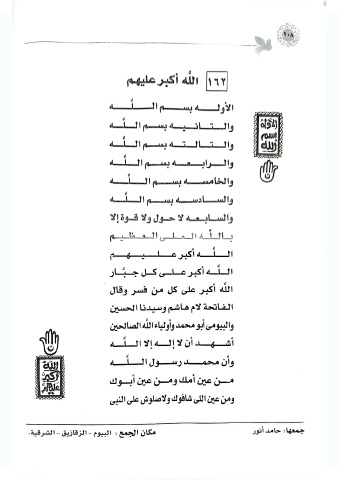 ٢٠٨
١٦٢ الله أكبر عليهم
الأوله بسم اللـه
والتانيه بسم اللـه
والتالته بسم اللـه
والرابعه بسم اللـه
والخامسه بسم اللـه
والسادسه بسم اللـه
والسابعه لا حول ولا قوة إلا
بالله العلى العظيم
اللـه أكبر عليهم
اللـه أكبر على كل جبَّار
الله أكبر على كل من فسر وقال
الفاتحة لام هاشم وسيدنا الحسين
والبيومى أبو محمد وأولياء الله الصالحين
أشهد أن لا إله إلا اللـه
وأن محمد رسول اللـه
من عين أمك ومن عين أبوك
ومن عين اللى شافوك ولاصلوش على النبى
الأوله
بسم
الله
الله
أكبر
عليهم
جمعها: حامد أنور
مكان الجمع: البيوم - الزقازيق - الشرقية.